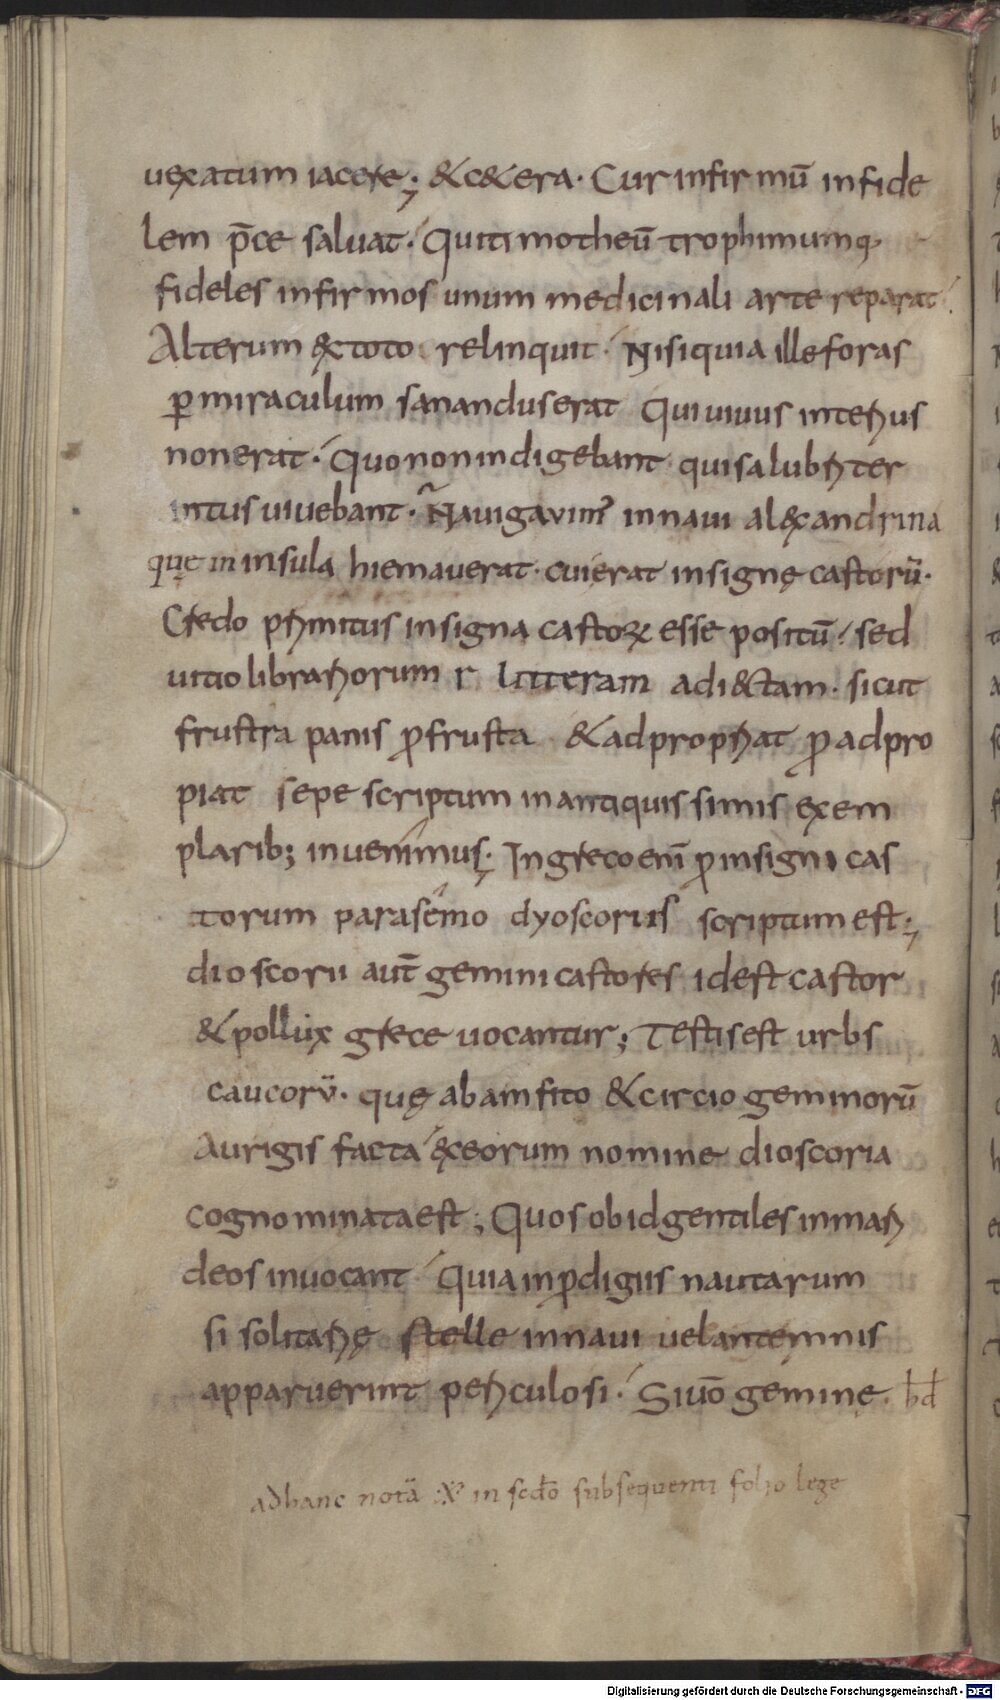 uexatum iacere; &c&era. Cur infirmū infide
lem p̄ce saluat. Qui timotheū trophimumq;
fideles infirmos unum medicinali arte reparat.
Alterum ex toto relinquit. Nisi quia ille foras
ꝑ miraculum sanandus erat Qui uiuus interius
non erat. Quo non indigebant qui salubriter
intus uiuebant. Nauigauim᾿ in naui alexandrina
quę in insula hiemauerat. cui erat insigne castorū.
Credo primitus insigna castoꝝ esse positū. sed
uitio librariorum r litteram adi&tam. sicut
frustra panis ꝓ frusta & ad propriat ꝓ adpro
piat sepe scriptum in antiquissimis exem
plarib; inuenimus. In greco eni̅ ꝓ insigni cas
torum parasemo dyoscoriis scriptum est;
dioscori aut̄ gemini castores id est castor
& pollux grece uocantur; Testis est urbs
caucorū. quę ab amfito & circio geminorū
Aurigis facta ex eorum nomine dioscoria
cognominata est; Quos ob id gentiles in mari
deos inuocant Quia in ꝓdigiis nautarum
si solitarię stelle in naui uel antemnis
apparuerint periculosi. Si uō gemine. hd
ad hanc notā :X: in scdo subsequenti folio lege
Digitalisierung gefördert durch die Deutsche Forschungsgemeinschaft - DFG